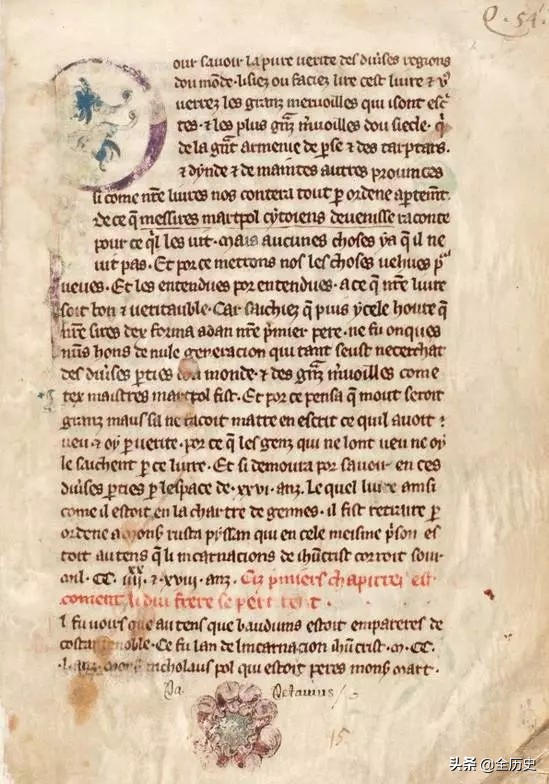 Q. 54.
our savoir la pure verite des diuses regions
dou mōde · lisiez ou faciez lire cest liure ⁊ vͦ
uerrez les granz meruoilles qui isont esc̃
tes · ⁊ les plus gñz m̃uoilles dou siecle · q̃
de la gñt armenie de ꝑse ⁊ des tarptars ·
⁊ dynde ⁊ de maintes autres prouinces
si come nr̃e liures nos contera tout ꝑ ordene aꝑtem̃t ·
de ce q̃ messires marcpol cytoiens deuenisse raconte
pour ce ql̃ les uit · mais aucunes choses ya q̃ il ne
uit pas · Et por ce mettons nos les choses uehues pͬ
ueues · Et les entendues por entendues · a ce q̃ nr̃e liure
soit bon ⁊ ueritauble · Car saichiez q̃ puis ycele houre q̃
nr̃e sires dex forma adan nr̃e p̃mier pere · ne fu onques
nuns hons de nule generacion qui tant seust ne cerchat
des diuses ꝑties dou monde · ⁊ des gñz m̃uoilles come
cex maistres marcpol fist · Et por ce pensa q̃ mout seroit
granz maus sa ne facoit matre en escrit ce quil auoit
ueu · ⁊ oy ꝑ uerite · por ce q̃ les genz qui ne lont ueu ne oy
le saichent ꝑ ce liure · Et si demoura por sauoir en ces
diuses ꝑties ꝑ lespace de · xxvi · anz · Le quel liure ainsi
come il estoit en la chartre de gennes · il fist retraire ꝑ
ordene a monß rusta pyssan qui en cele meisme p̃son es
toit au tens q̃ li incarnacions de ih̃ucrist corroit sour
· mil · CC · iiijͯͯ · ⁊ · xviii · anz · Ciz p̃miers chapitres est
coment li dui frere se ꝑtirent ·
l fu uoirs que au tens que bauduins estoit empareres de
costantinoble · Ce fu lan de lincarnacion ih̃ucrist · m · CC ·
· l · anz · monß nicholaus pol qui estoit peres monß marc ·
Pa. Petauius /
15
头条 @全历史